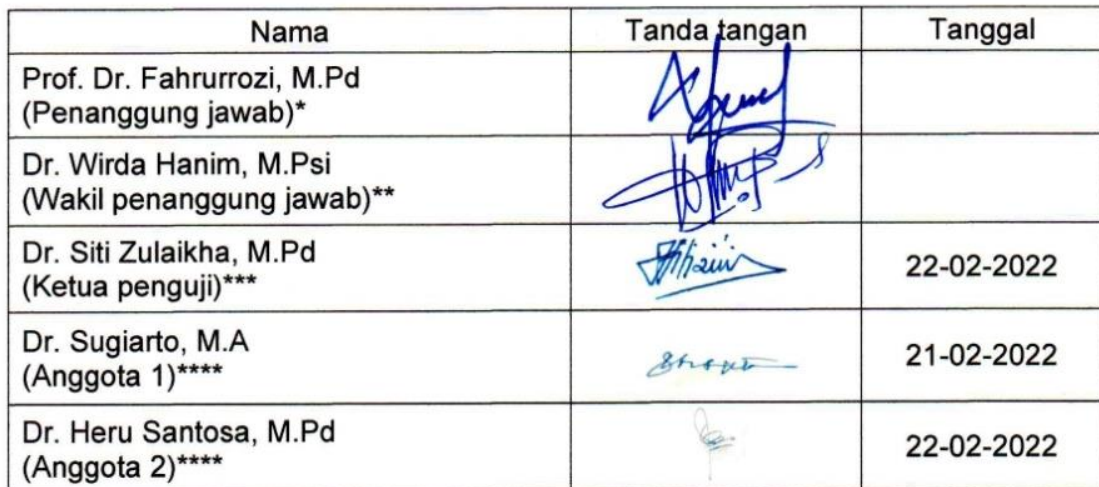 Nama Tanda tangan Tanggal
Prof. Dr. Fahrurrozi, M.Pd
(Penanggung jawab)*
Dr. Wirda Hanim, M.Psi
(Wakil penanggung jawab)**
Dr. Siti Zulaikha, M.Pd
(Ketua penguji)***
22-02-2022
Dr. Sugiarto, M.A
(Anggota 1)****
21-02-2022
Dr. Heru Santosa, M.Pd
(Anggota 2)****
22-02-2022